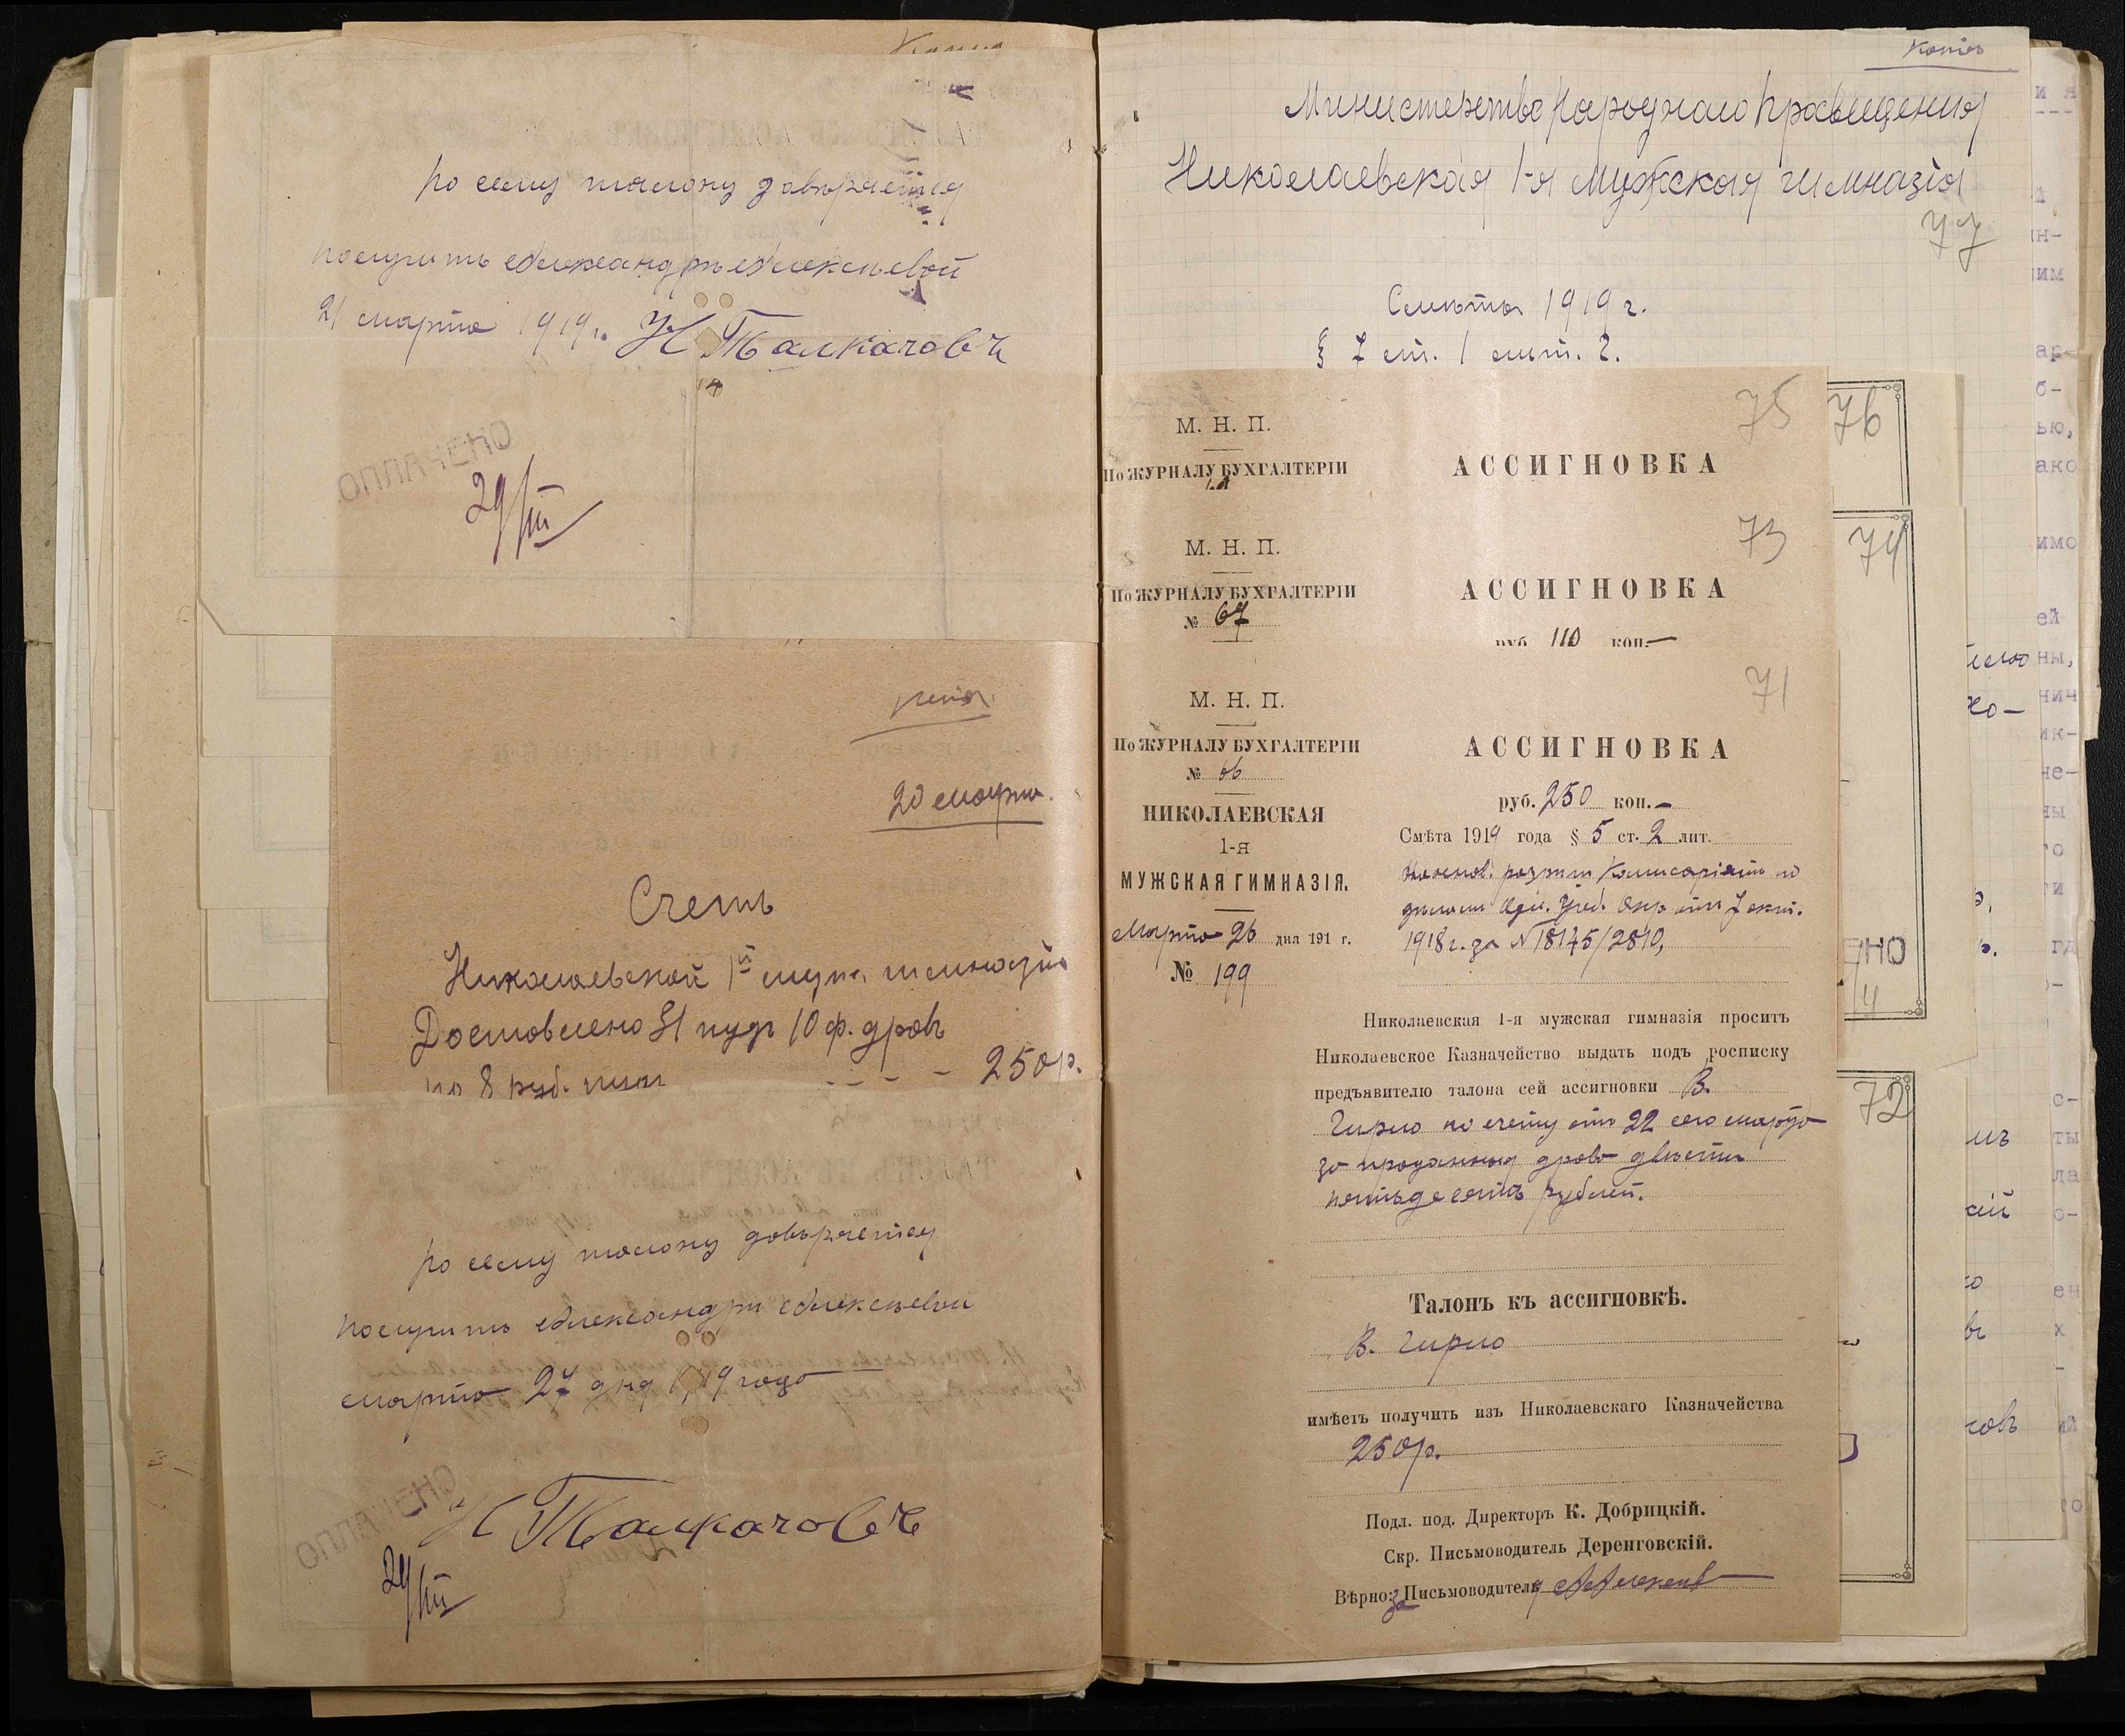 По сему талону довѣряется
получить Александрѣ Алексѣевой
21 марта 1919 г. Н Толкачовъ
ОПЛАЧЕНО
29/III
копія
20 марта.
Счетъ
Николаевской 1й муж. гимназіи
Доставлено 31 пудъ 10 ф. дровъ
по 8 руб. пудъ - - - - 250р.
По сему талону довѣряется
получить Александрѣ Алексѣевой
марта 27 дня 1919 года
Н Толкачовъ
ОПЛАЧЕНО
29/III
Копія
Министерство Народнаго Просвѣщенія
Николаевская 1-я Мужская гимназія
77
Смѣта 1919 г.
§ 7 ст. 1 лит. 2.
75
76
М. Н. П.
По ЖУРНАЛУ БУХГАЛТЕРІИ
АССИГНОВКА
73
74
М. Н. П.
По ЖУРНАЛУ БУХГАЛТЕРІИ
№ 67
АССИГНОВКА
руб 110 коп.—
71
М. Н. П.
По ЖУРНАЛУ БУХГАЛТЕРІИ
№ 66
НИКОЛАЕВСКАЯ
1-я
МУЖСКАЯ ГИМНАЗІЯ.
Марта 26 дня 191 г.
№ 199
АССИГНОВКА
руб. 250 коп.—
Смѣта 1919 года § 5 ст. 2 лит.
На основ. разрѣш Комисаріата по
дѣламъ Одес. Учеб. Окр отъ 7 окт.
1918 г. за № 18145/2810,
Николаевская 1-я мужская гимназія проситъ
Николаевское Казначейство выдать подъ росписку
предъявителю талона сей ассигновки В.
Гирло по счету отъ 22 сего марта
за проданныя дрова двѣсти
пятьдесятъ рублей.
Талонъ къ ассигновкѣ.
В. Гирло
имѣетъ получить изъ Николаевскаго Казначейства
250р.
Подл. под. Директоръ К. Добрицкій.
Скр. Письмоводитель Деренговскій.
Вѣрно: за Письмоводителя
72